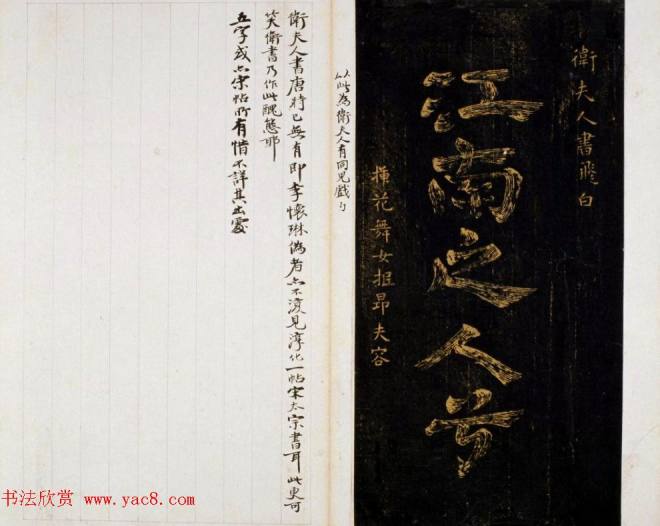 衛夫人書飛白
江南之人兮
插花舞女掍昴夫容
以此為衛夫人有同兒戲了
衛夫人書唐時已無有即李懷琳偽者亦不復見淳化一帖宋太宗書耳此更可
笑衛書乃作此醜態耶
五字或亦宋帖所有惜不詳其出處
书法欣赏 www.yac8.com